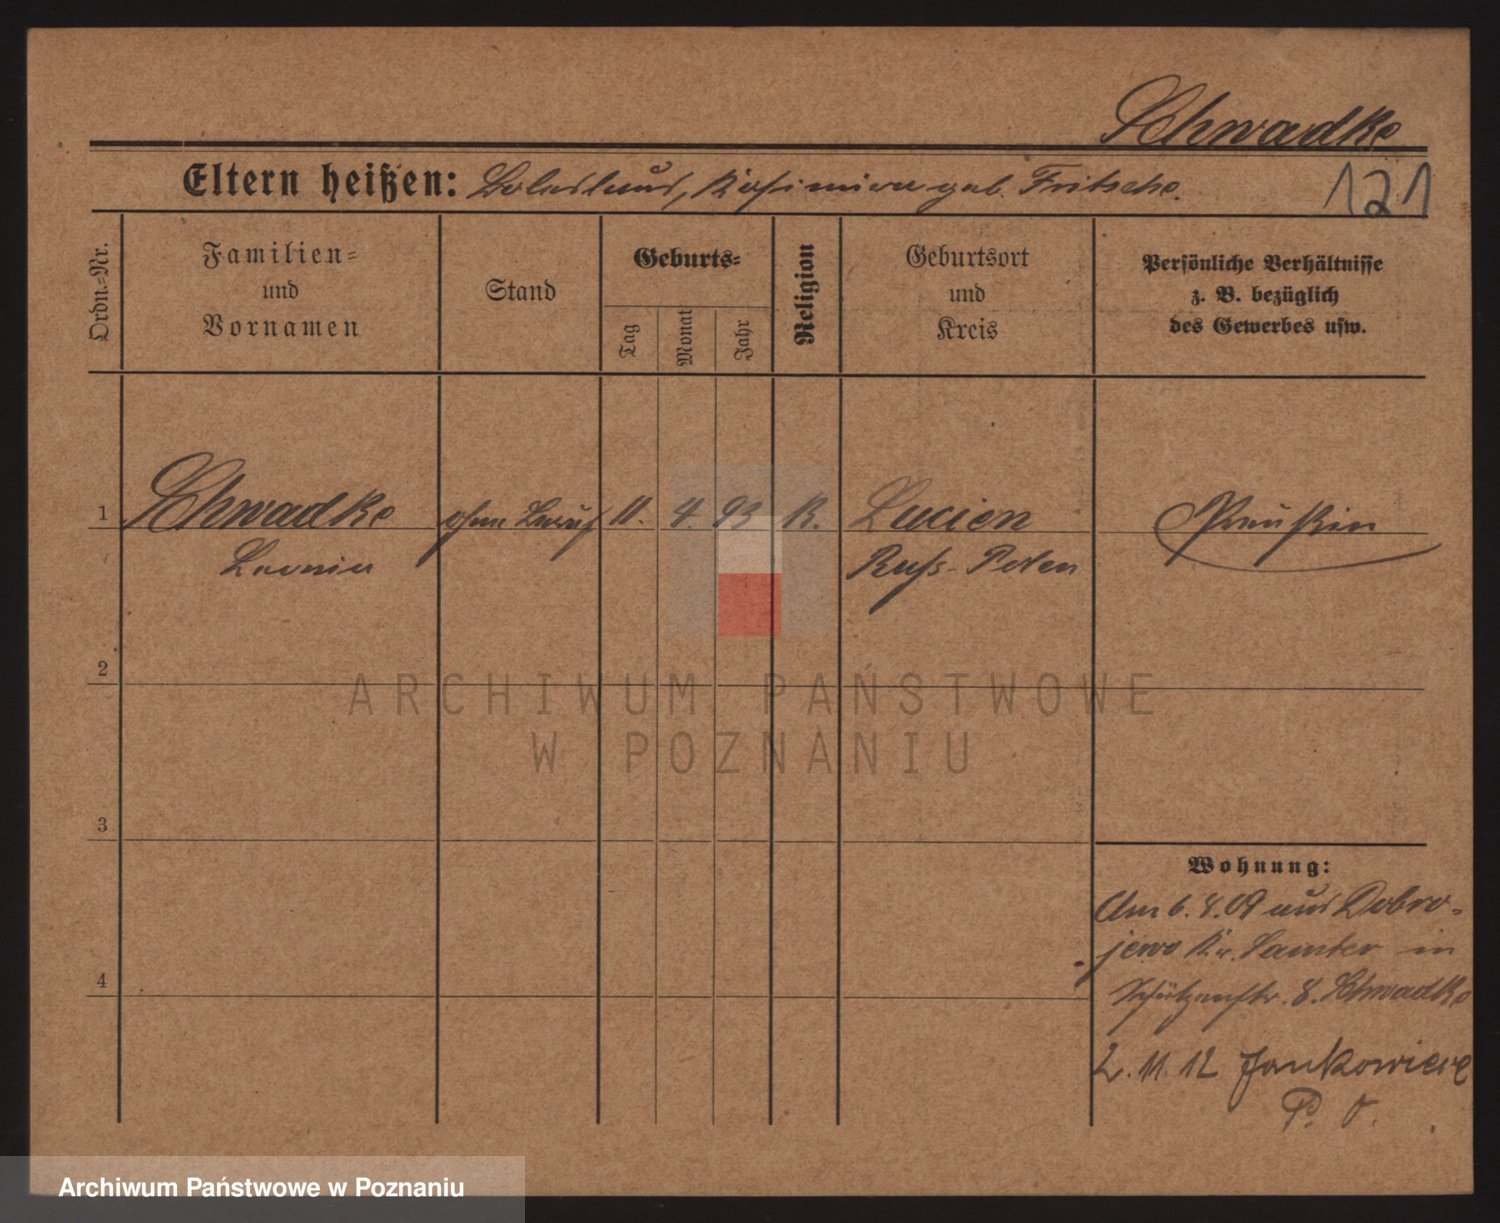 Schwadke
Eltern heißen: Boleslaus, Kasimira geb. Fritsche.
121
Ordn.-Nr.
Familien-
und
Vornamen
Stand
Geburts-
Tag
Monat
Jahr
Religion
Geburtsort
und
Kreis
Persönliche Verhältnisse
z. B. bezüglich
des Gewerbes usw.
1 Schwadke ohne Beruf 11. 4. 93 K. Lucien Preußin
Russ-Polen
2
3
4
Wohnung:
Am 6. 4. 09 aus Dobro-
jewo Kr. Samter in
Schützenstr. 8. Schwadke
2. 11. 12
P. O.
ARCHIWUM PAŃSTWOWE
W POZNANIU
Archiwum Państwowe w Poznaniu